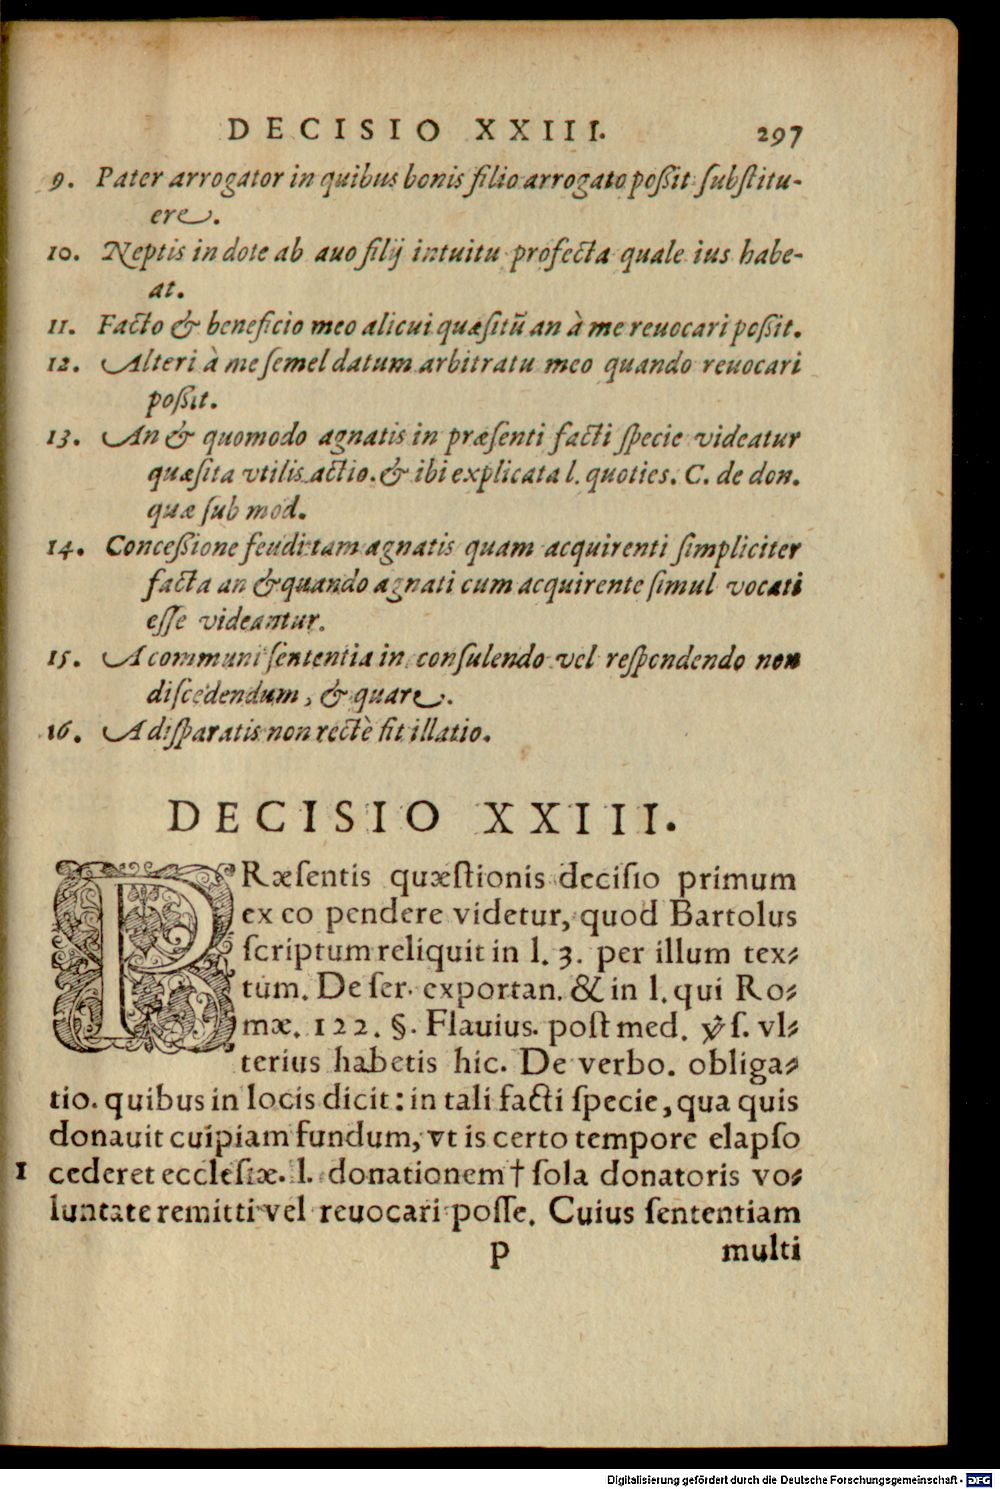 DECISIO XXIII. 297
9. Pater arrogator in quibus bonis filio arrogato poßit ſubſtitu-
ere.
10. Neptis in dote ab auo filij intuitu profecta quale ius habe-
at.
11. Facto & beneficio meo alicui quæſitũ an à me reuocari poßit.
12. Alteri à me ſemel datum arbitratu meo quando reuocari
poßit.
13. An & quomodo agnatis in præſenti facti ſpecie videatur
quæſita vtilis actio. & ibi explicata l. quoties. C. de don.
quæ ſub mod.
14. Conceßione feudi tam agnatis quam acquirenti ſimpliciter
facta an & quando agnati cum acquirente ſimul vocati
eſſe videantur.
15. A communi ſententia in conſulendo vel reſpondendo non
diſcedendum, & quare.
16. A diſparatis non rectè fit illatio.
DECISIO XXIII.
PRæſentis quæſtionis deciſio primum
ex eo pendere videtur, quod Bartolus
ſcriptum reliquit in l. 3. per illum tex-
tum. De ſer. exportan. & in l. qui Ro-
mæ. 122. §. Flauius. poſt med. ꝟſ. vl-
terius habetis hic. De verbo. obliga-
tio. quibus in locis dicit: in tali facti ſpecie, qua quis
donauit cuipiam fundum, vt is certo tempore elapſo
1 cederet eccleſiæ. l. donationem † ſola donatoris vo-
luntate remitti vel reuocari poſſe. Cuius ſententiam
p multi
Digitalisierung gefördert durch die Deutsche Forschungsgemeinschaft - DFG